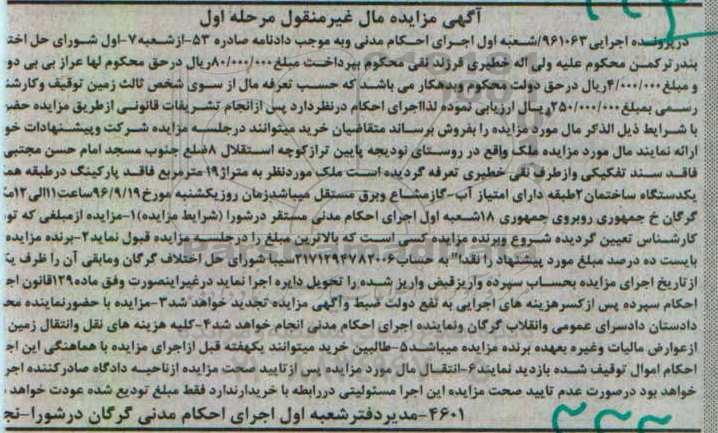 آگهی مزایده مال غیرمنقول مرحله اول
درپرونده اجرایی۹۶۱۰۶۳/شعبه اول اجرای احکام مدنی وبه موجب دادنامه صادره ۵۳-ازشعبه۷-اول شورای حل
بندرترکمن محکوم علیه ولی اله خطیری فرزند نقی محکوم بپرداخت مبلغ۸۰/۰۰۰/۰۰۰ریال درحق محکوم لها عراز بی بی
و مبلغ۴/۰۰۰/۰۰۰ریال درحق دولت محکوم وبدهکار می باشد که حسب تعرفه مال از سوی شخص ثالث زمین توقیف
رسمی بمبلغ۲۵۰/۰۰۰/۰۰۰ریال ارزیابی نموده لذااجرای احکام درنظردارد پس ازانجام تشریفات قانونی ازطریق مزایده
با شرایط ذیل الذکر مال مورد مزایده را بفروش برساند متقاضیان خرید میتوانند درجلسه مزایده شرکت وپیشنهادات
ارائه نمایند مال مورد مزایده ملک واقع در روستای نودیجه پایین ترازکوچه استقلال ۸ضلع جنوب مسجد امام حسن مجتبی
فاقد سند تفکیکی وازطرف نقی خطیری تعرفه گردیده است ملک موردنظر به متراژ۱۹ مترمربع فاقد پارکینگ درطبقه
یکدستگاه ساختمان۲طبقه دارای امتیاز آب-گازمشاع وبرق مستقل میباشدزمان روزیکشنبه مورخ۹۶/۹/۱۹ساعت۱۱الی۱۲
گرگان خ جمهوری روبروی جمهوری ۱۸شعبه اول اجرای احکام مدنی مستقر درشورا (شرایط مزایده)۱-مزایده ازمبلغی که
کارشناس تعیین گردیده شروع وبرنده مزایده کسی است که بالاترین مبلغ را درجلسه مزایده قبول نماید۲-برنده مزایده
بایست ده درصد مبلغ مورد پیشنهاد را نقدا" به حساب۲۱۷۱۲۹۴۷۸۲۰۰۶سیبا شورای حل اختلاف گرگان ومابقی آن را ظرف
ازتاریخ اجرای مزایده بحساب سپرده واریزقبض واریز شده را تحویل دایره اجرا نماید درغیراینصورت وفق ماده۱۲۹قانون
احکام سپرده پس ازکسرهزینه های اجرایی به نفع دولت ضبط وآگهی مزایده تجدید خواهد شد۳-مزایده با حضورنماینده
دادستان دادسرای عمومی وانقلاب گرگان ونماینده اجرای احکام مدنی انجام خواهد شد۴-کلیه هزینه های نقل وانتقال زمین
ازعوارض مالیات وغیره بعهده برنده مزایده میباشد۵-طالبین خرید میتوانند یکهفته قبل ازاجرای مزایده با هماهنگی این
احکام اموال توقیف شده بازدید نمایند۶-انتقال مال مورد مزایده پس ازتایید صحت مزایده ازناحیه دادگاه صادرکننده
خواهد بود درصورت عدم تایید صحت مزایده این اجرا مسئولیتی دررابطه با خریدارندارد فقط مبلغ تودیع شده عودت خواهد
۴۶۰۱-مدیردفترشعبه اول اجرای احکام مدنی گرگان درشورا-